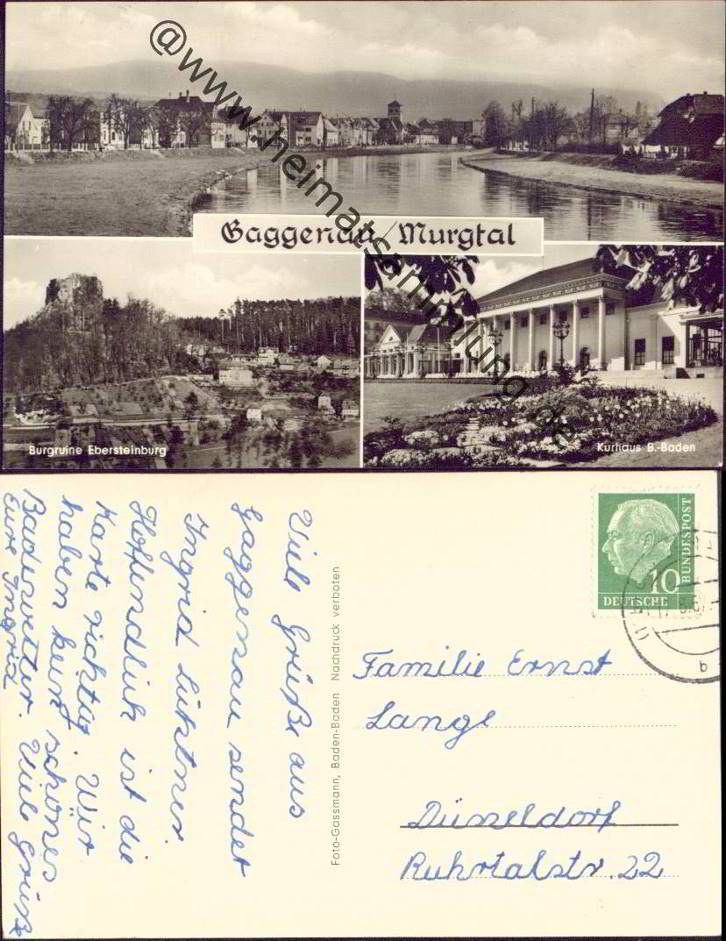 @www.heimatsammlung.de
Gaggenau/Murgtal
Burgruine Ebersteinburg
Kurhaus B.-Baden
Viele Grüße aus
Gaggenau sendet
Ingrid
Hoffendlich ist die
Karte richtig. Wir
haben heut schönes
Badewetter. Viele Grüße
Eure Ingrid
Foto-Gassmann, Baden-Baden Nachdruck verboten
10
DEUTSCHE
BUNDESPOST
Familie Ernst
Lange
Düsseldorf
Ruhrtalstr. 22